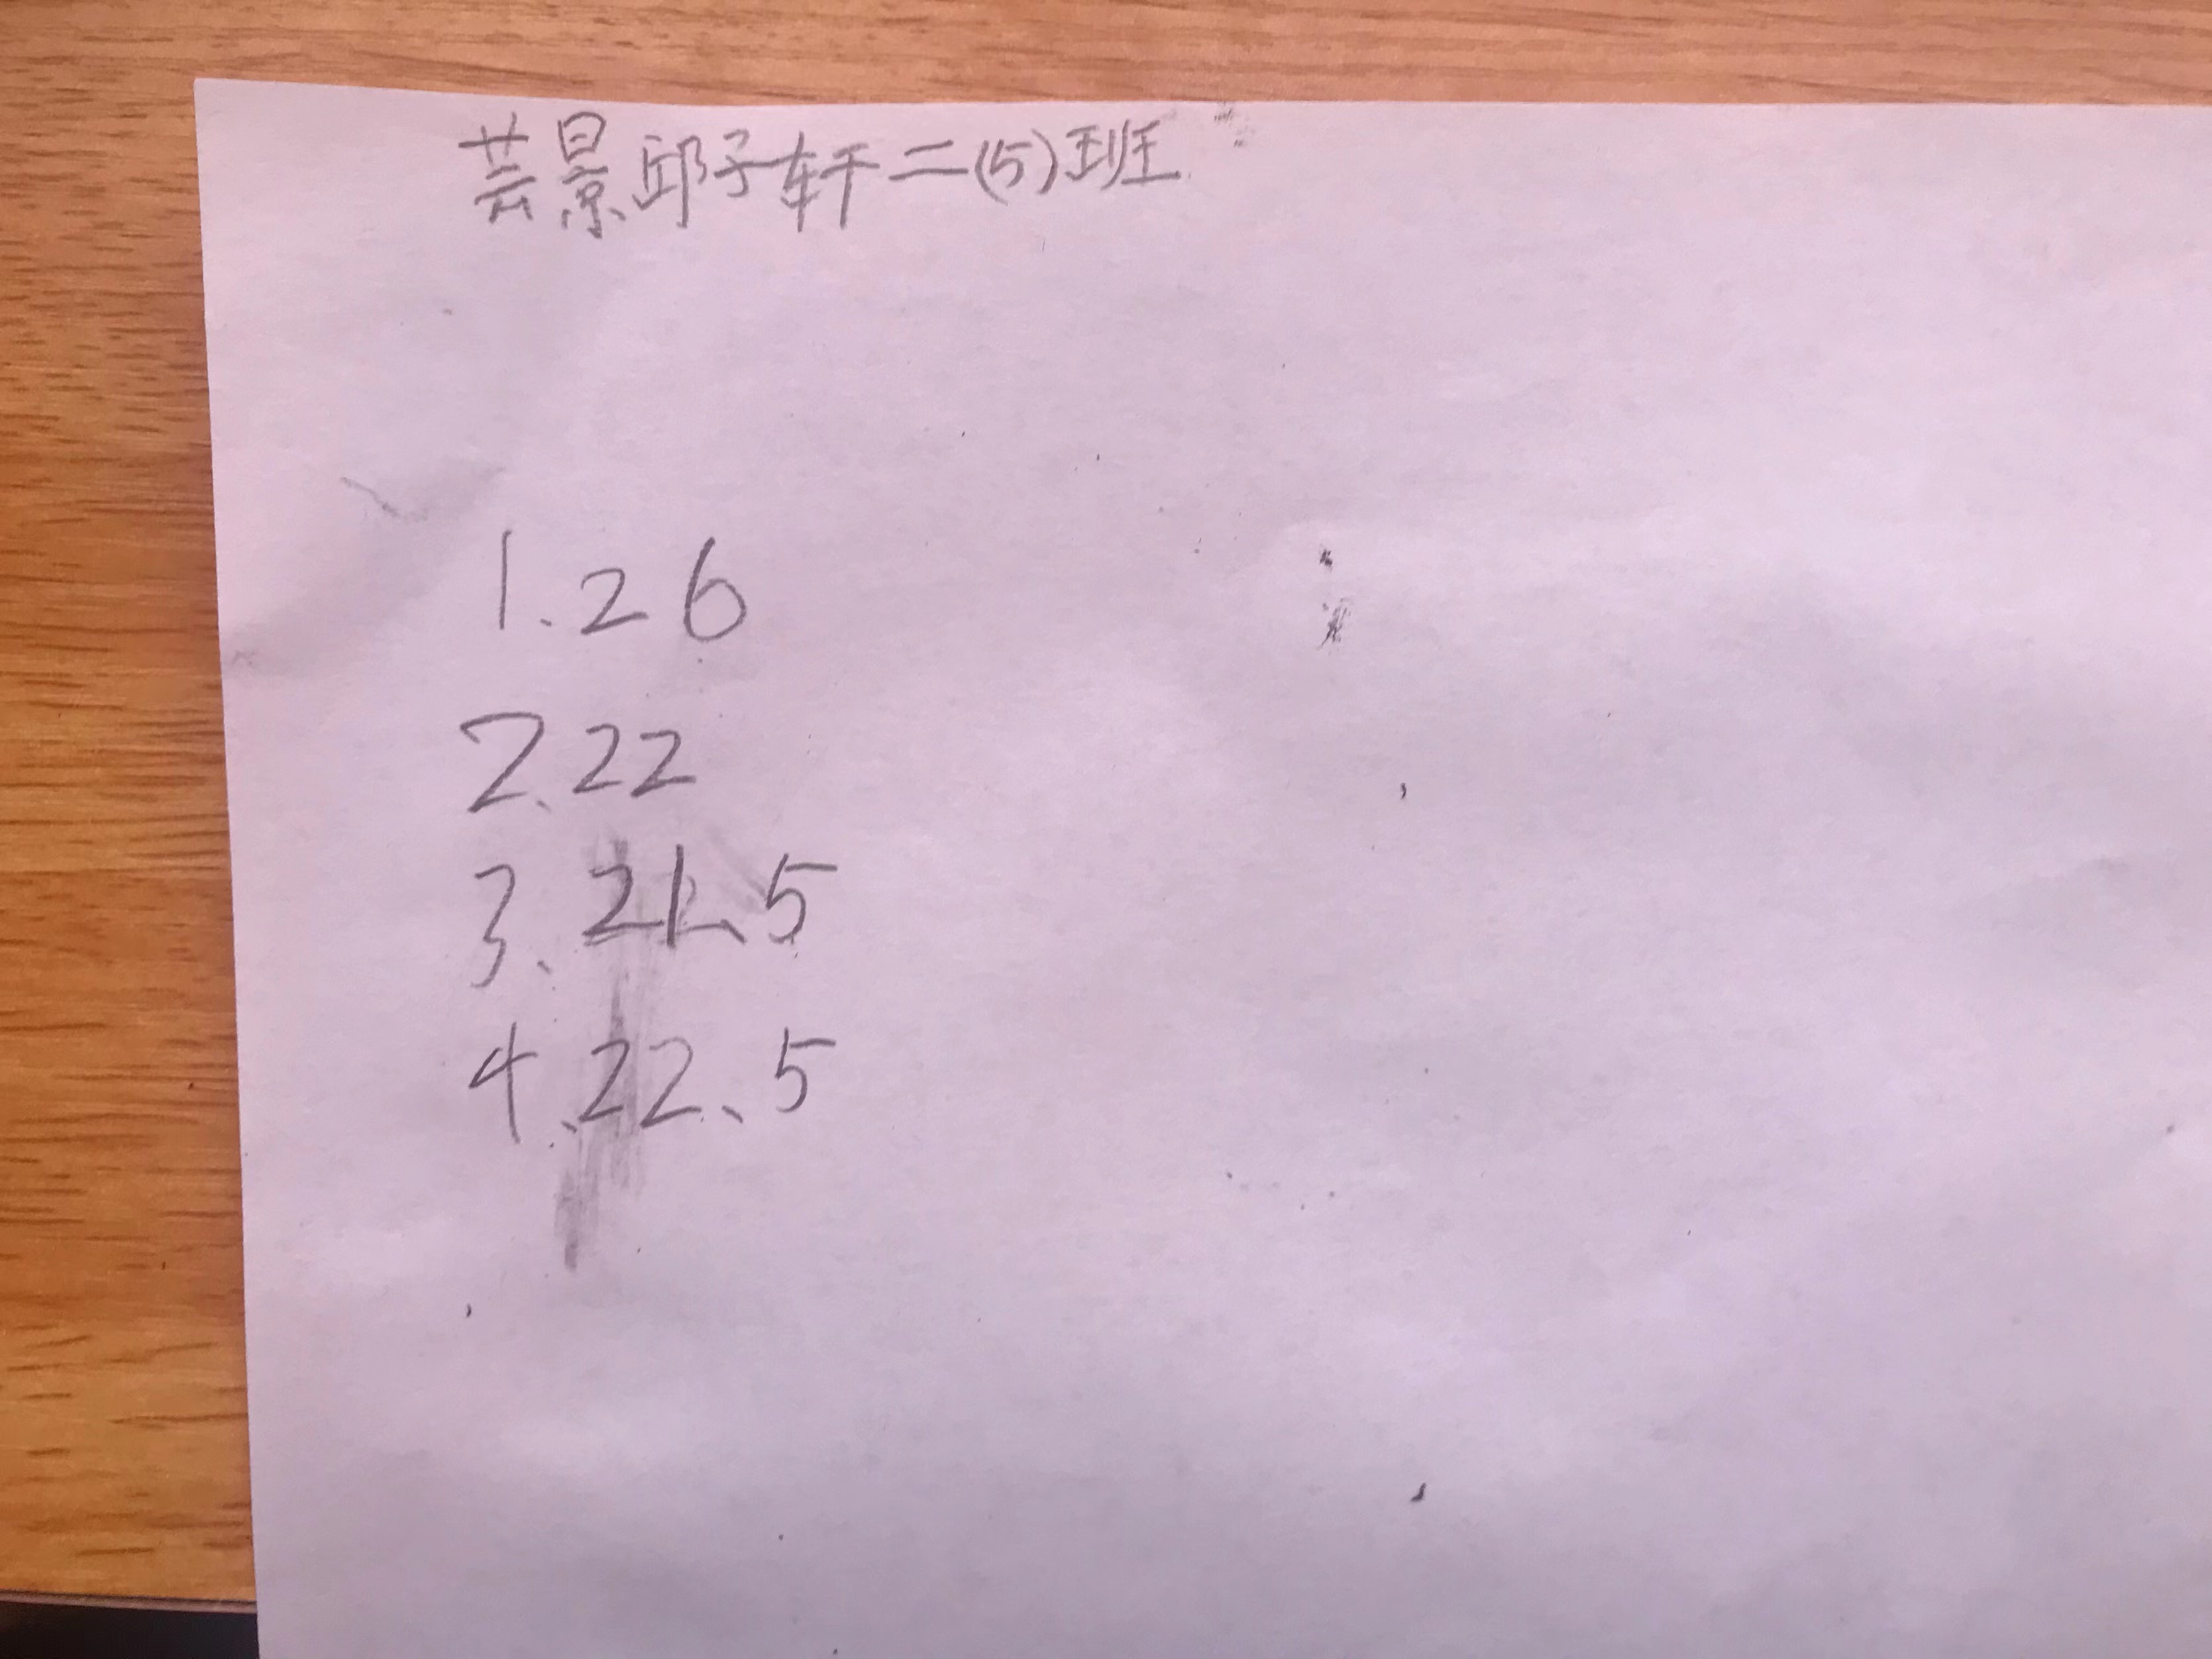 芸景邱子轩二(5)班
1.26
2.22
3.21.5
4.22.5